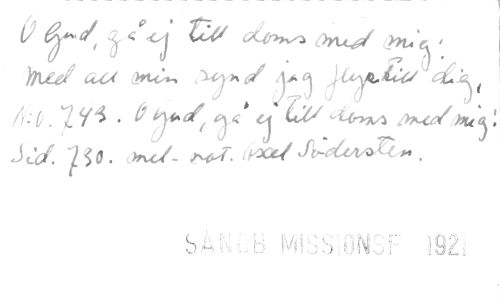 O Gud, gå ej till doms med mig!
med all min synd jag flyr till dig,
N:o. 743. O Gud, gå ej till doms med mig!
Sid. 730. mel-not. Axel Södersten.
SÅNGB MISSIONSF 192